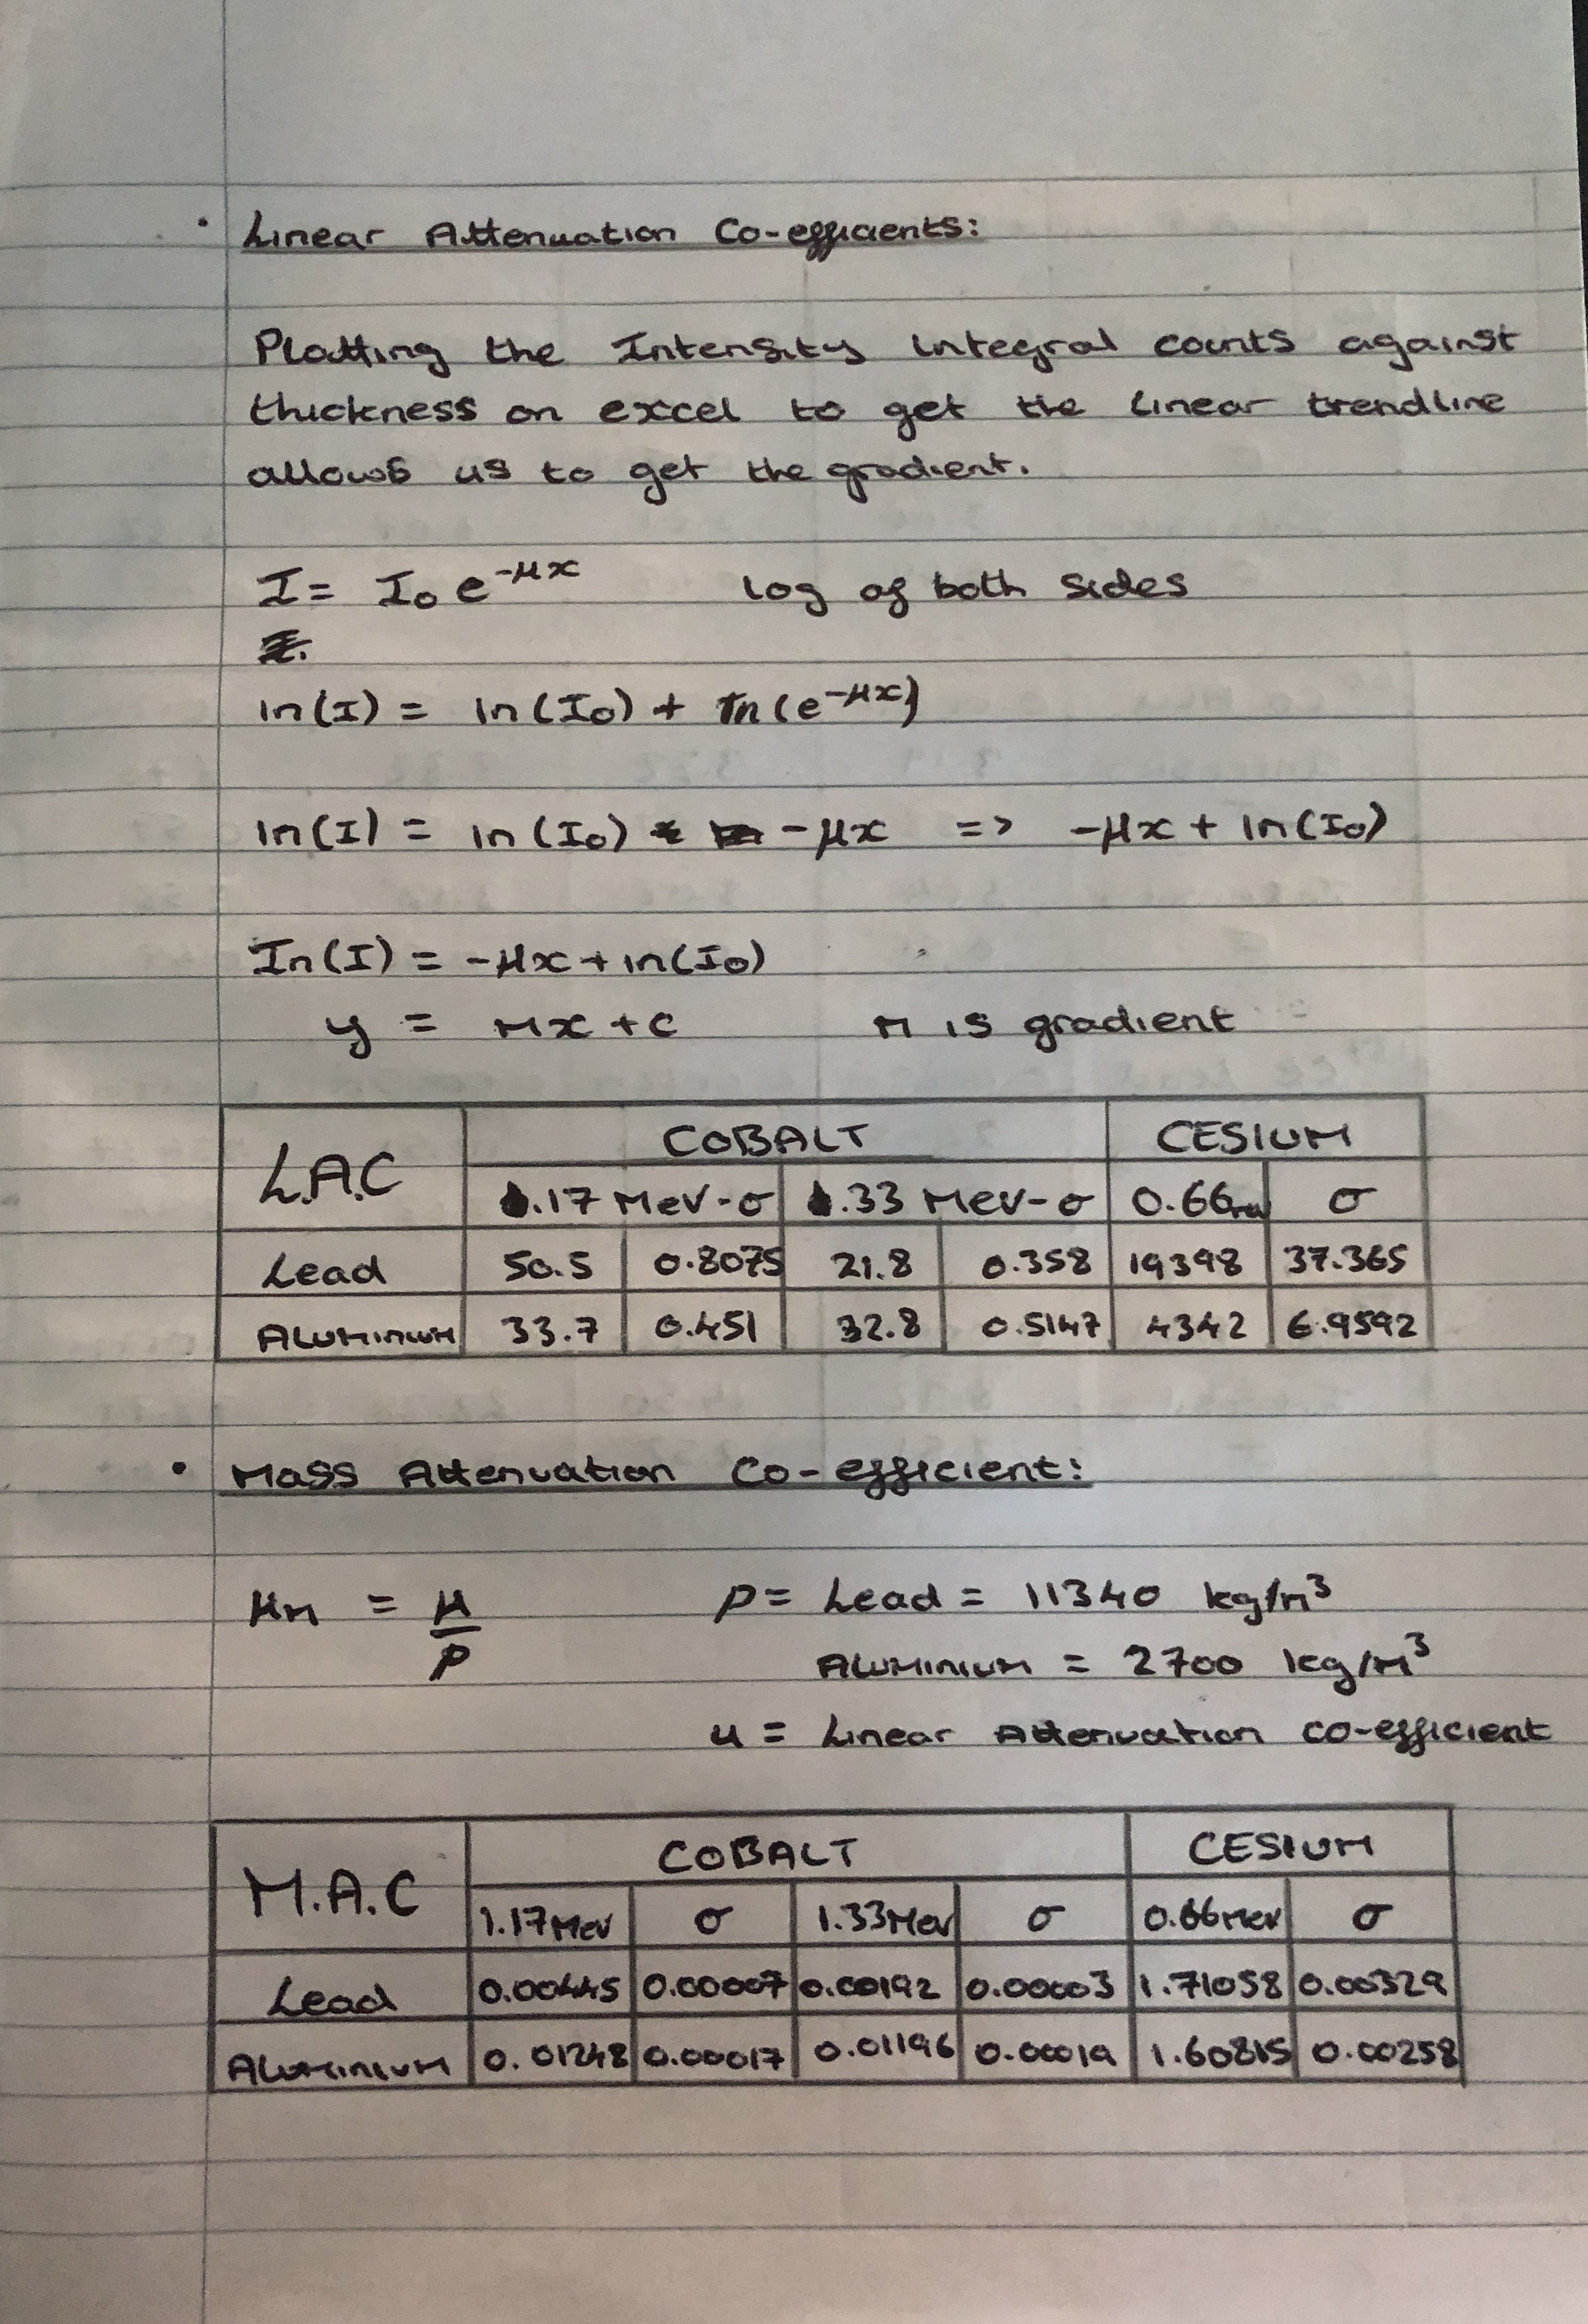 · Linear Attenuation Co-efficients:
Plotting the Intensity integral counts against
thickness on excel to get the linear trendline
allows us to get the gradient.
I = I₀ e^-μx log of both sides
ln(I) = ln(I₀) + ln(e^-μx)
ln(I) = ln(I₀) -μx => -μx + ln(I₀)
In(I) = -μx + ln(I₀)
y = mx + c m is gradient
L.A.C COBALT CESIUM
1.17 MeV-σ 1.33 MeV-σ 0.66 MeV σ
Lead 50.5 0.8075 21.8 0.358 19398 37.365
Aluminium 33.7 0.451 32.8 0.5147 4342 6.9592
· Mass Attenuation Co-efficient:
μm = μ/ρ ρ = Lead = 11340 kg/m³
Aluminium = 2700 kg/m³
u = Linear Attenuation co-efficient
M.A.C COBALT CESIUM
1.17 MeV σ 1.33 MeV σ 0.66 MeV σ
Lead 0.00445 0.00007 0.00192 0.00003 1.71058 0.00329
Aluminium 0.01248 0.00017 0.01196 0.00019 1.60815 0.00258